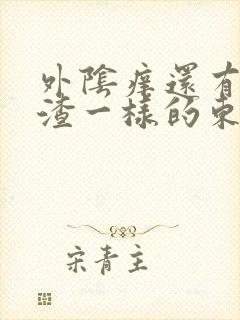 外陰痒還有
渣一樣的東
宋青主